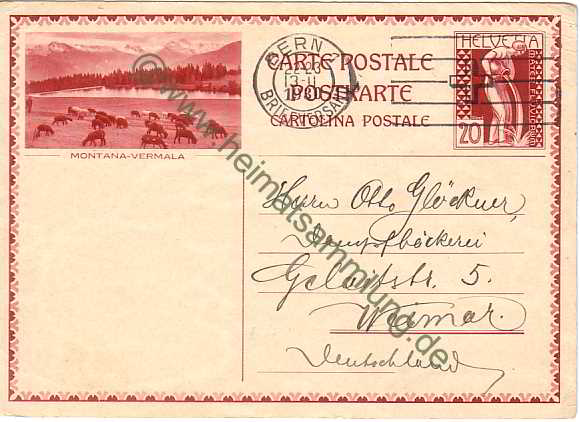 CARTE POSTALE
POSTKARTE
CARTOLINA POSTALE
BERN
1930
BRIEFVERSAND
HELVETIA
20
MONTANA-VERMALA
Herrn Otto Glöckner,
Dampfbäckerei
5.
Weimar.
Deutschland
© www.heimatsammlung.de